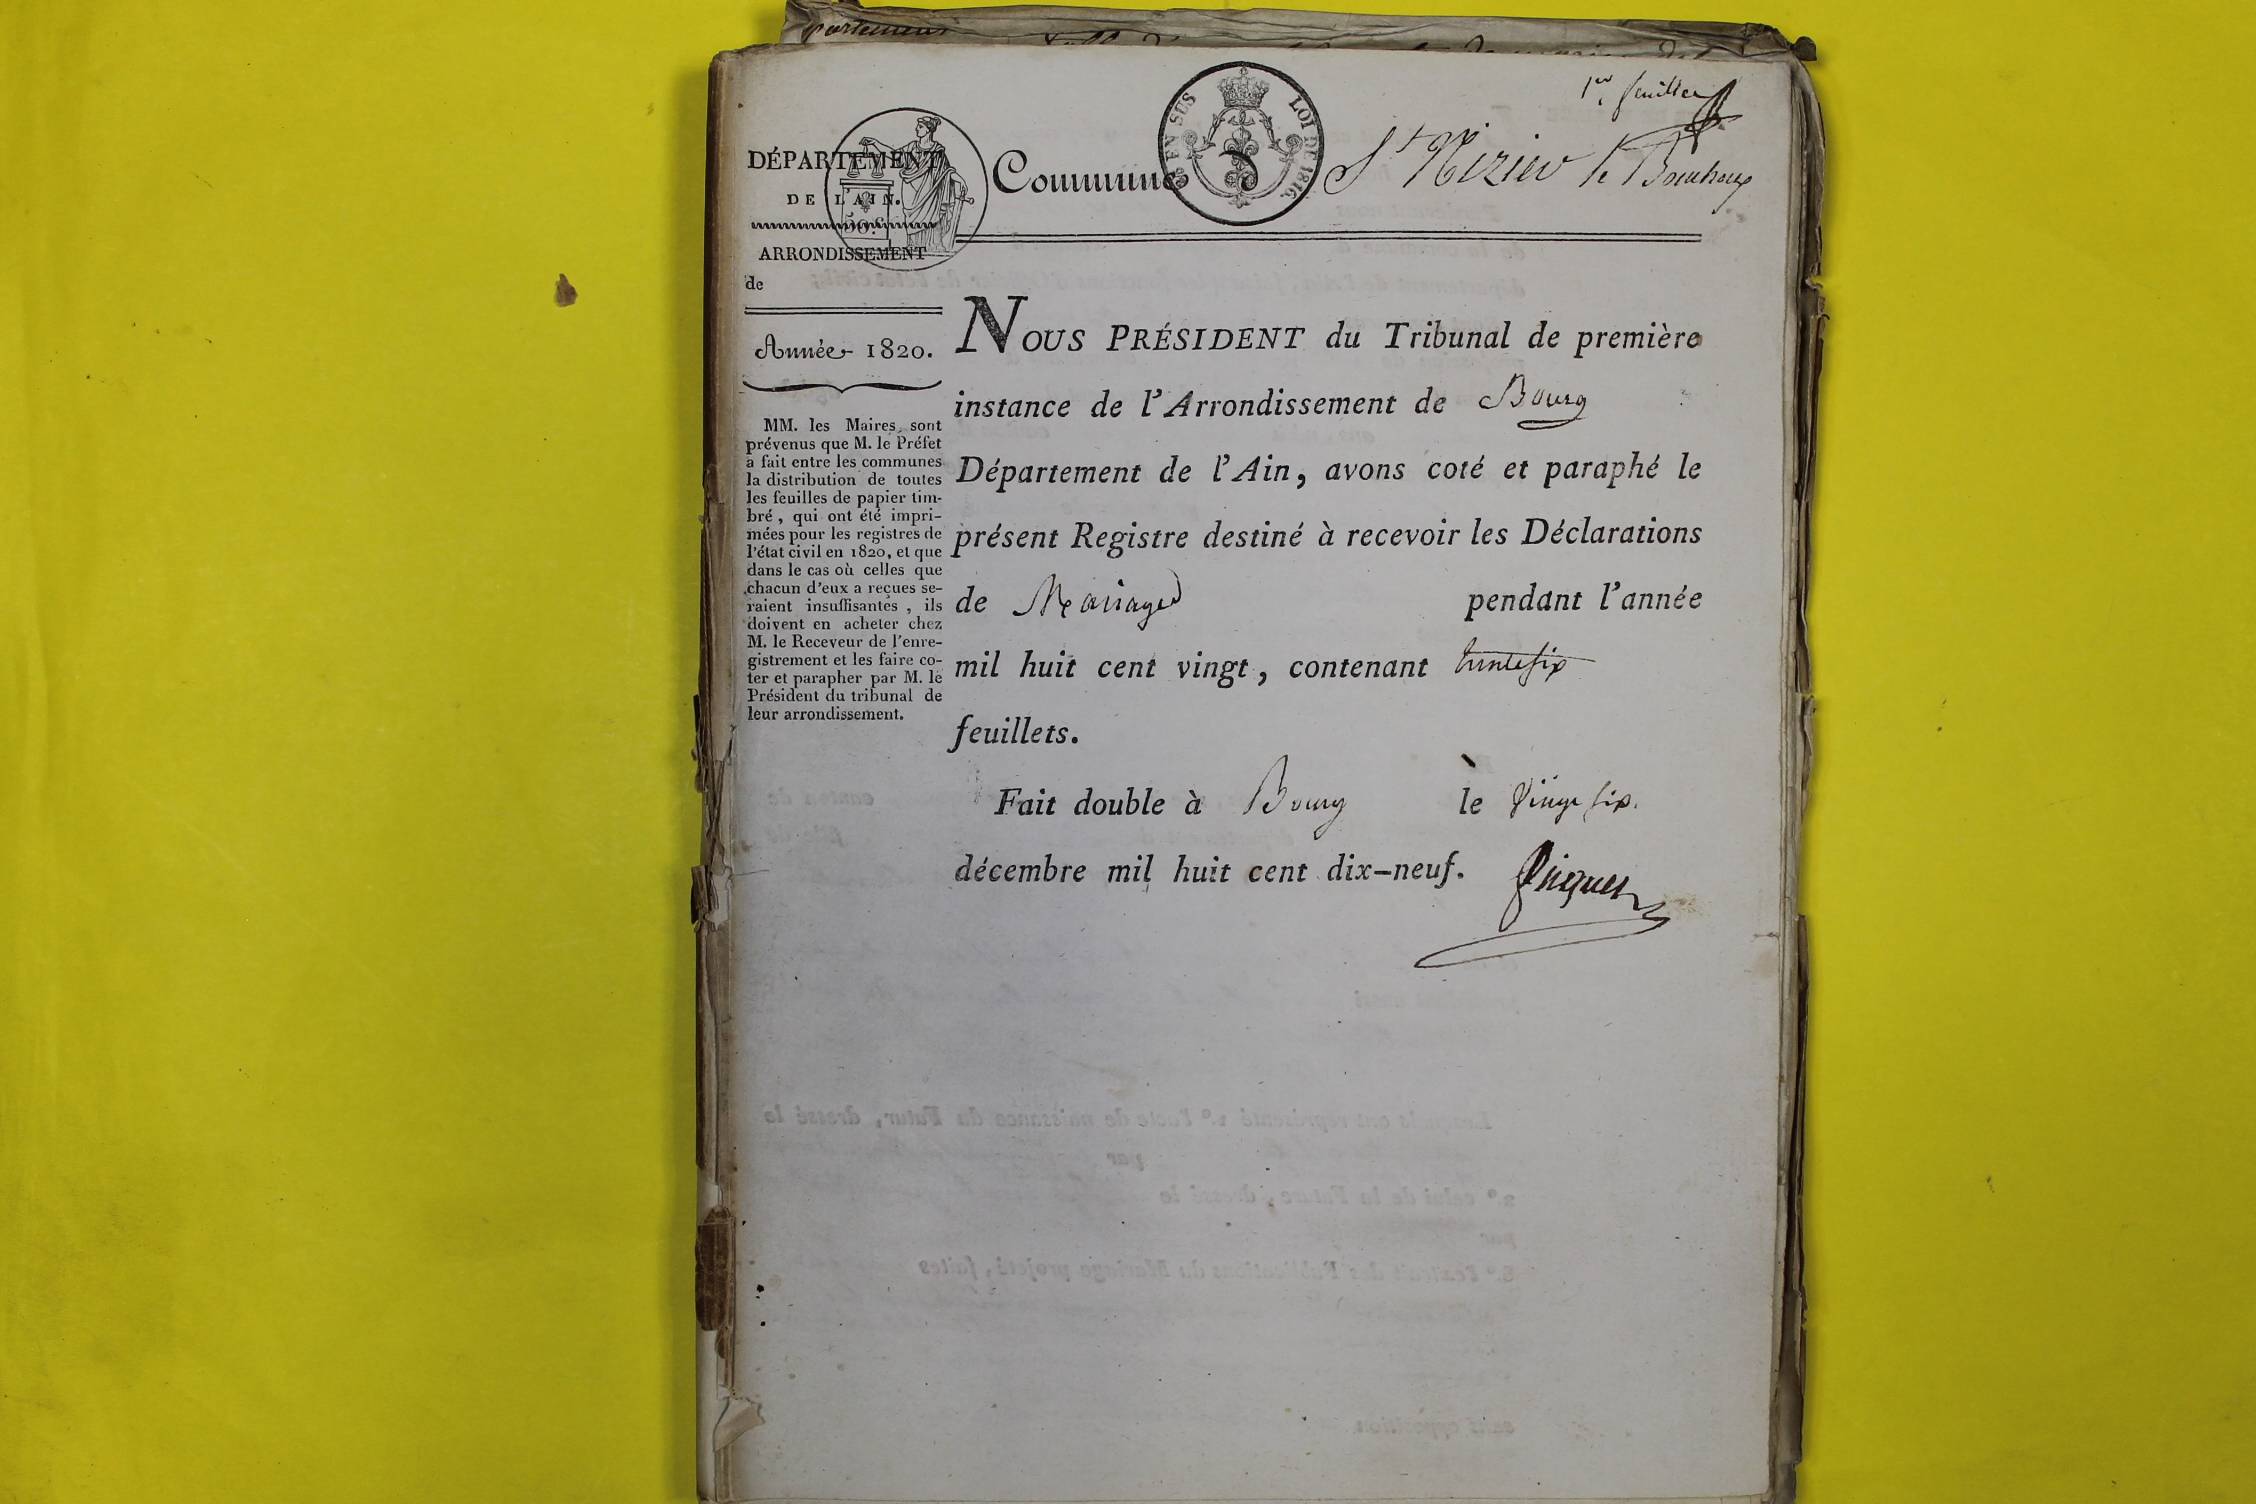 1er feuillet
DÉPARTEMENT
DE L'AIN.
50 c
ARRONDISSEMENT
de
Commune d
EN SUS LOI DE 1816.
St Nizier le Bouchoux
Année 1820.
MM. les Maires sont
prévenus que M. le Préfet
a fait entre les communes
la distribution de toutes
les feuilles de papier tim-
bré, qui ont été impri-
mées pour les registres de
l'état civil en 1820, et que
dans le cas où celles que
chacun d'eux a reçues se-
raient insuffisantes, ils
doivent en acheter chez
M. le Receveur de l'enre-
gistrement et les faire co-
ter et parapher par M. le
Président du tribunal de
leur arrondissement.
NOUS PRÉSIDENT du Tribunal de première
instance de l'Arrondissement de Bourg
Département de l'Ain, avons coté et paraphé le
présent Registre destiné à recevoir les Déclarations
de Mariages pendant l'année
mil huit cent vingt, contenant trente six
feuillets.
Fait double à Bourg le Vingt six
décembre mil huit cent dix-neuf.